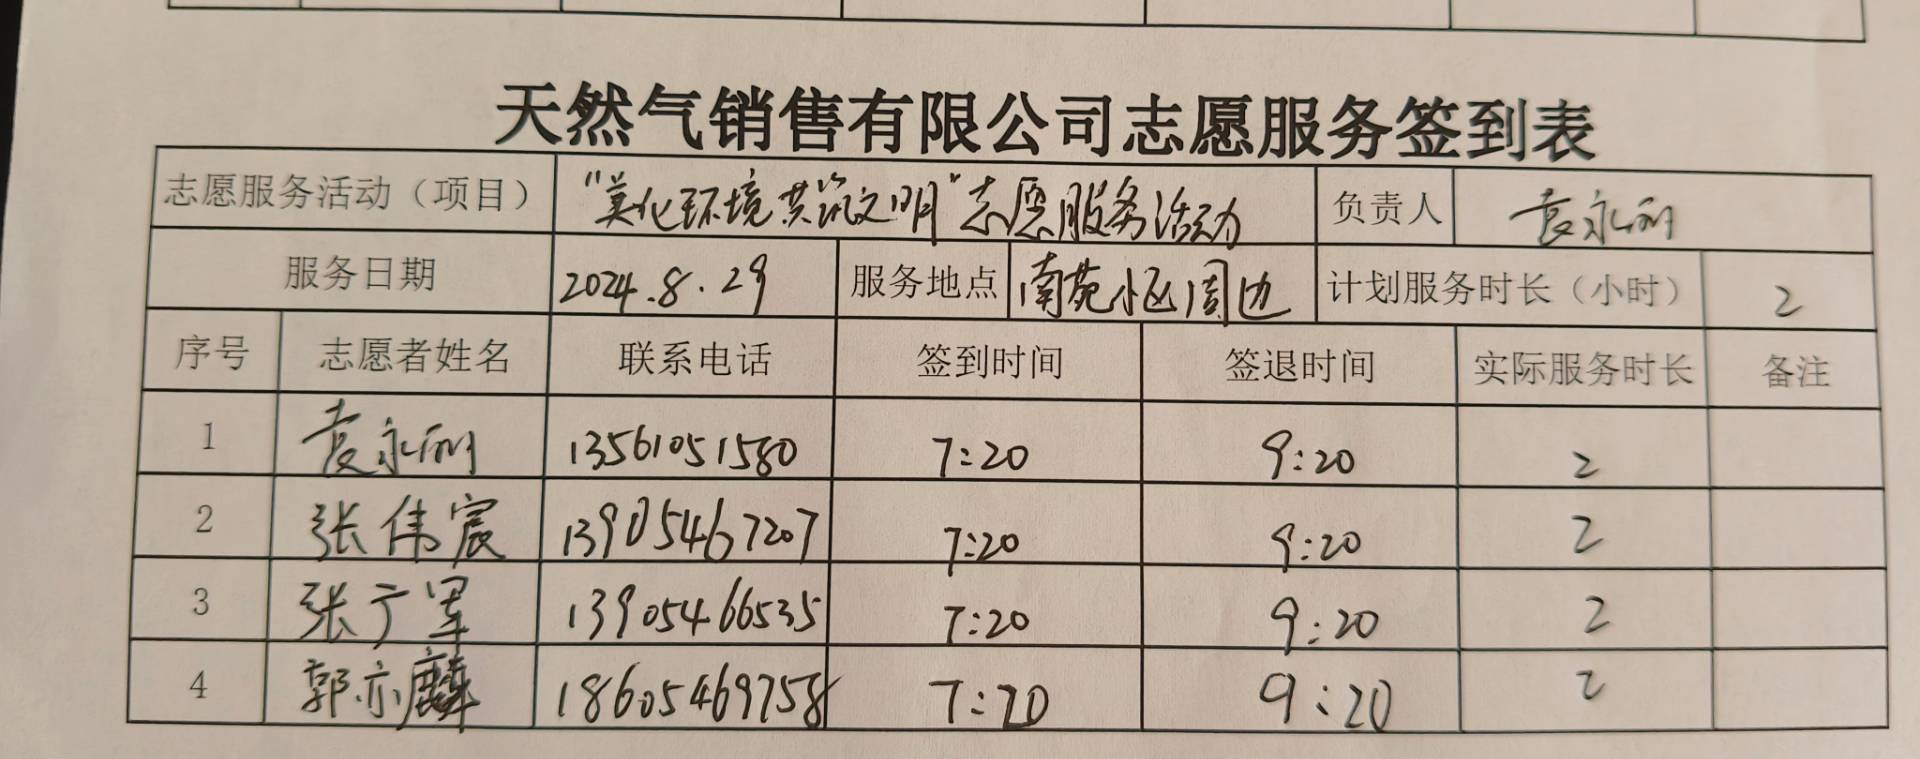 天然气销售有限公司志愿服务签到表
志愿服务活动（项目） “美化环境共筑文明”志愿服务活动 负责人 袁永利
服务日期 2024.8.29 服务地点 南苑小区周边 计划服务时长（小时） 2
序号 志愿者姓名 联系电话 签到时间 签退时间 实际服务时长 备注
1 袁永利 13561051580 7:20 9:20 2
2 张伟宸 13905467207 7:20 9:20 2
3 张广军 13905466535 7:20 9:20 2
4 郭亦麟 18605469758 7:20 9:20 2